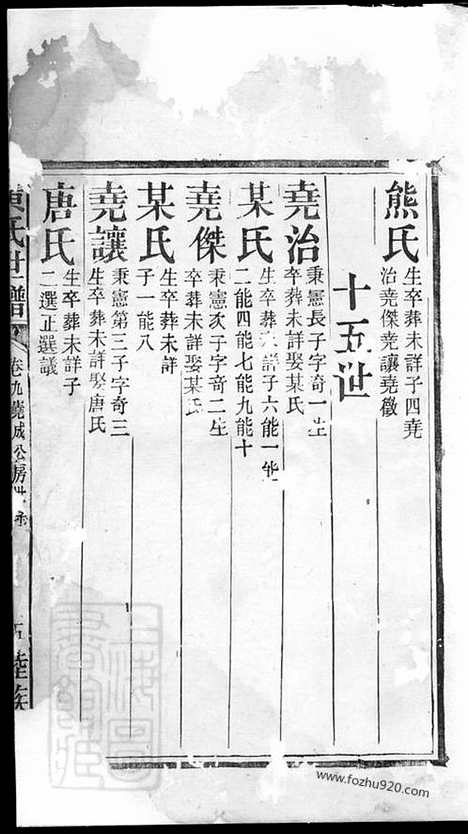 熊氏
生卒葬未詳子四堯
治堯傑堯讓堯徵
十五世
堯治
秉憲長子字奇一生
卒葬未詳娶某氏
某氏
生卒葬 詳子六能一能
二能四能七能九能十
堯傑
秉憲次子字奇二生
卒葬未詳娶某氏
某氏
生卒葬未詳
子一能八
堯讓
秉憲第三子字奇三
生卒葬未詳娶唐氏
唐氏
生卒葬未詳子
二選正選議
氏世譜
卷九堯成公房
陸族
www.fozhu920.com